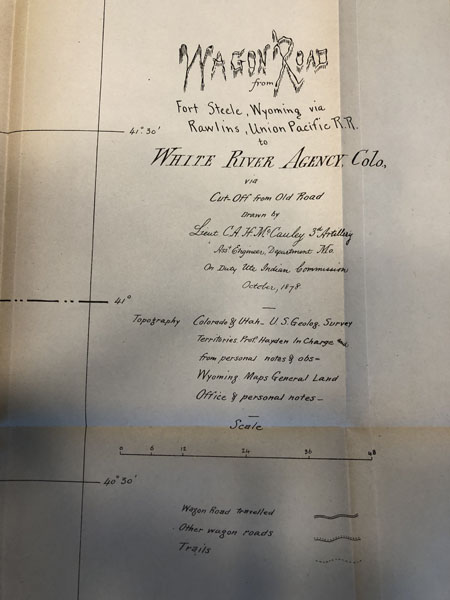 WAGON ROAD
from
Fort Steele, Wyoming via
Rawlins, Union Pacific R.R.
41° 30'
to
WHITE RIVER AGENCY, Colo,
via
Cut-Off from Old Road
Drawn by
Lieut C.A.H. McCauley 3d Artillery
Asst Engineer, Department Mo.
On Duty Ute Indian Commission
October, 1878
41°
Topography Colorado & Utah - U.S. Geolog. Survey
Territories Prof. Hayden In Charge
from personal notes & obs-
Wyoming Maps General Land
Office & personal notes -
Scale
0 6 12 24 36 48
40° 30'
Wagon Road travelled
Other wagon roads
Trails